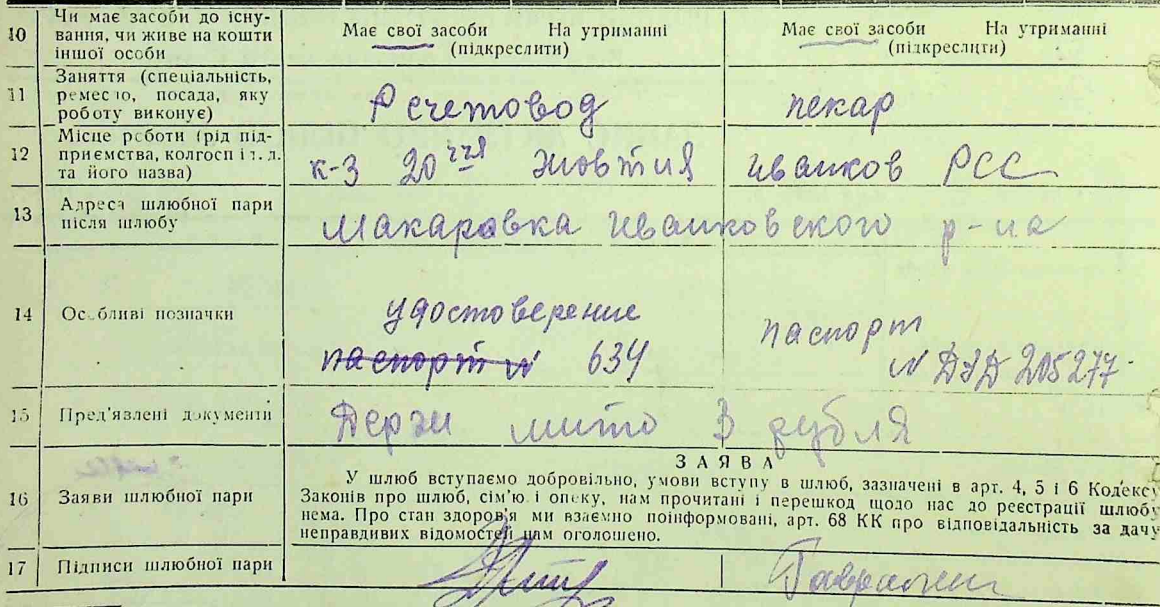 10 Чи має засоби до існу-
вання, чи живе на кошти
іншої особи
Має свої засоби На утриманні
(підкреслити)
Має свої засоби На утриманні
(підкреслити)
11 Заняття (спеціальність,
ремесло, посада, яку
роботу виконує)
Рсчетовод
пекар
12 Місце роботи (рід під-
приємства, колгосп і т. д.
та його назва)
к-з 20 ччя жовтня
Иванков РСС
13 Адреса шлюбної пари
після шлюбу
Макаровка Иванковского р-на
14 Особливі позначки
удостоверение
паспорт № 634
паспорт
№ 205277
15 Пред'явлені документи
Держ мито 3 рубля
16 Заяви шлюбної пари
ЗАЯВА
У шлюб вступаємо добровільно, умови вступу в шлюб, зазначені в арт. 4, 5 і 6 Кодексу
Законів про шлюб, сім'ю і опеку, нам прочитані і перешкод щодо нас до реєстрації шлюбу
нема. Про стан здоров'я ми взаємно поінформовані, арт. 68 КК про відповідальність за дачу
неправдивих відомостей нам оголошено.
17 Підписи шлюбної пари